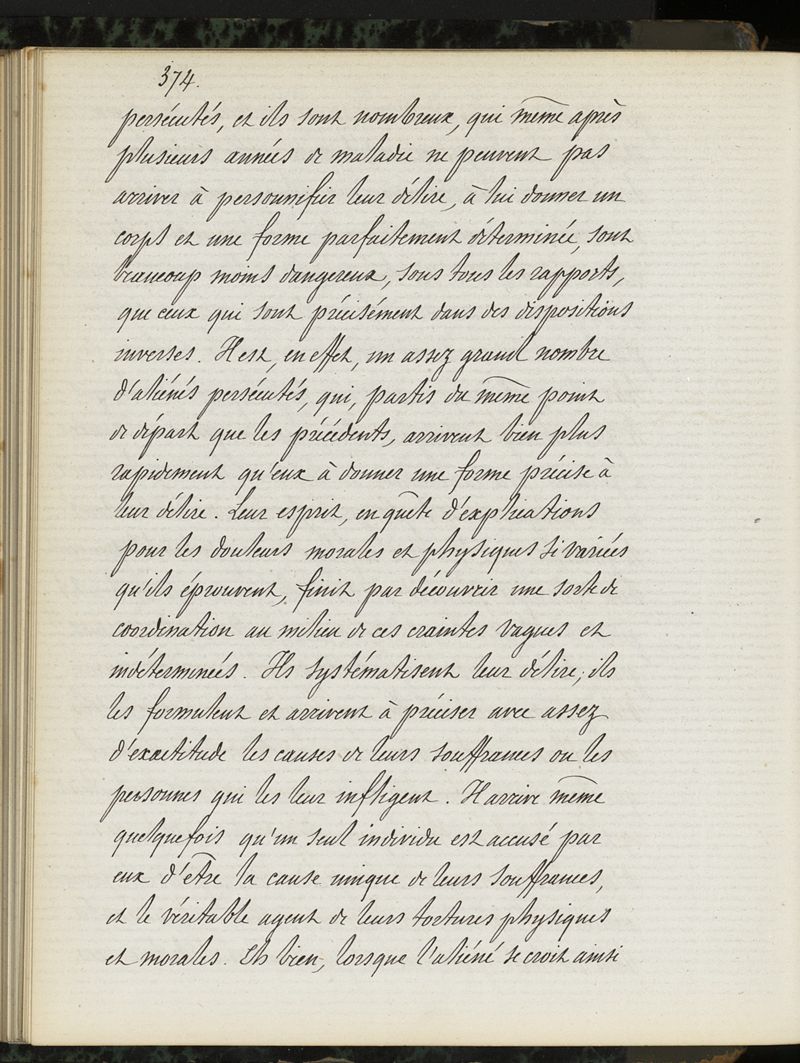 374.
persécutés, et ils sont nombreux, qui même après
plusieurs années de maladie ne peuvent pas
arriver à personnifier leur délire, à lui donner un
corps et une forme parfaitement déterminée, sont
beaucoup moins dangereux, sous tous les rapports,
que ceux qui sont précisément dans des dispositions
inverses. Il est, en effet, un assez grand nombre
d'aliénés persécutés, qui, partis du même point
de départ que les précédents, arrivent bien plus
rapidement qu'eux à donner une forme précise à
leur délire. Leur esprit, en quête d'explications
pour les douleurs morales et physiques si variées
qu'ils éprouvent, finit par découvrir une sorte de
coordination au milieu de ces craintes vagues et
indéterminées. Ils systématisent leur délire; ils
les formulent et arrivent à préciser avec assez
d'exactitude les causes de leurs souffrances ou les
personnes qui les leur infligent. Il arrive même
quelquefois qu'un seul individu est accusé par
eux d'être la cause unique de leurs souffrances,
et le véritable agent de leurs tortures physiques
et morales. Eh bien, lorsque l'aliéné se croit ainsi